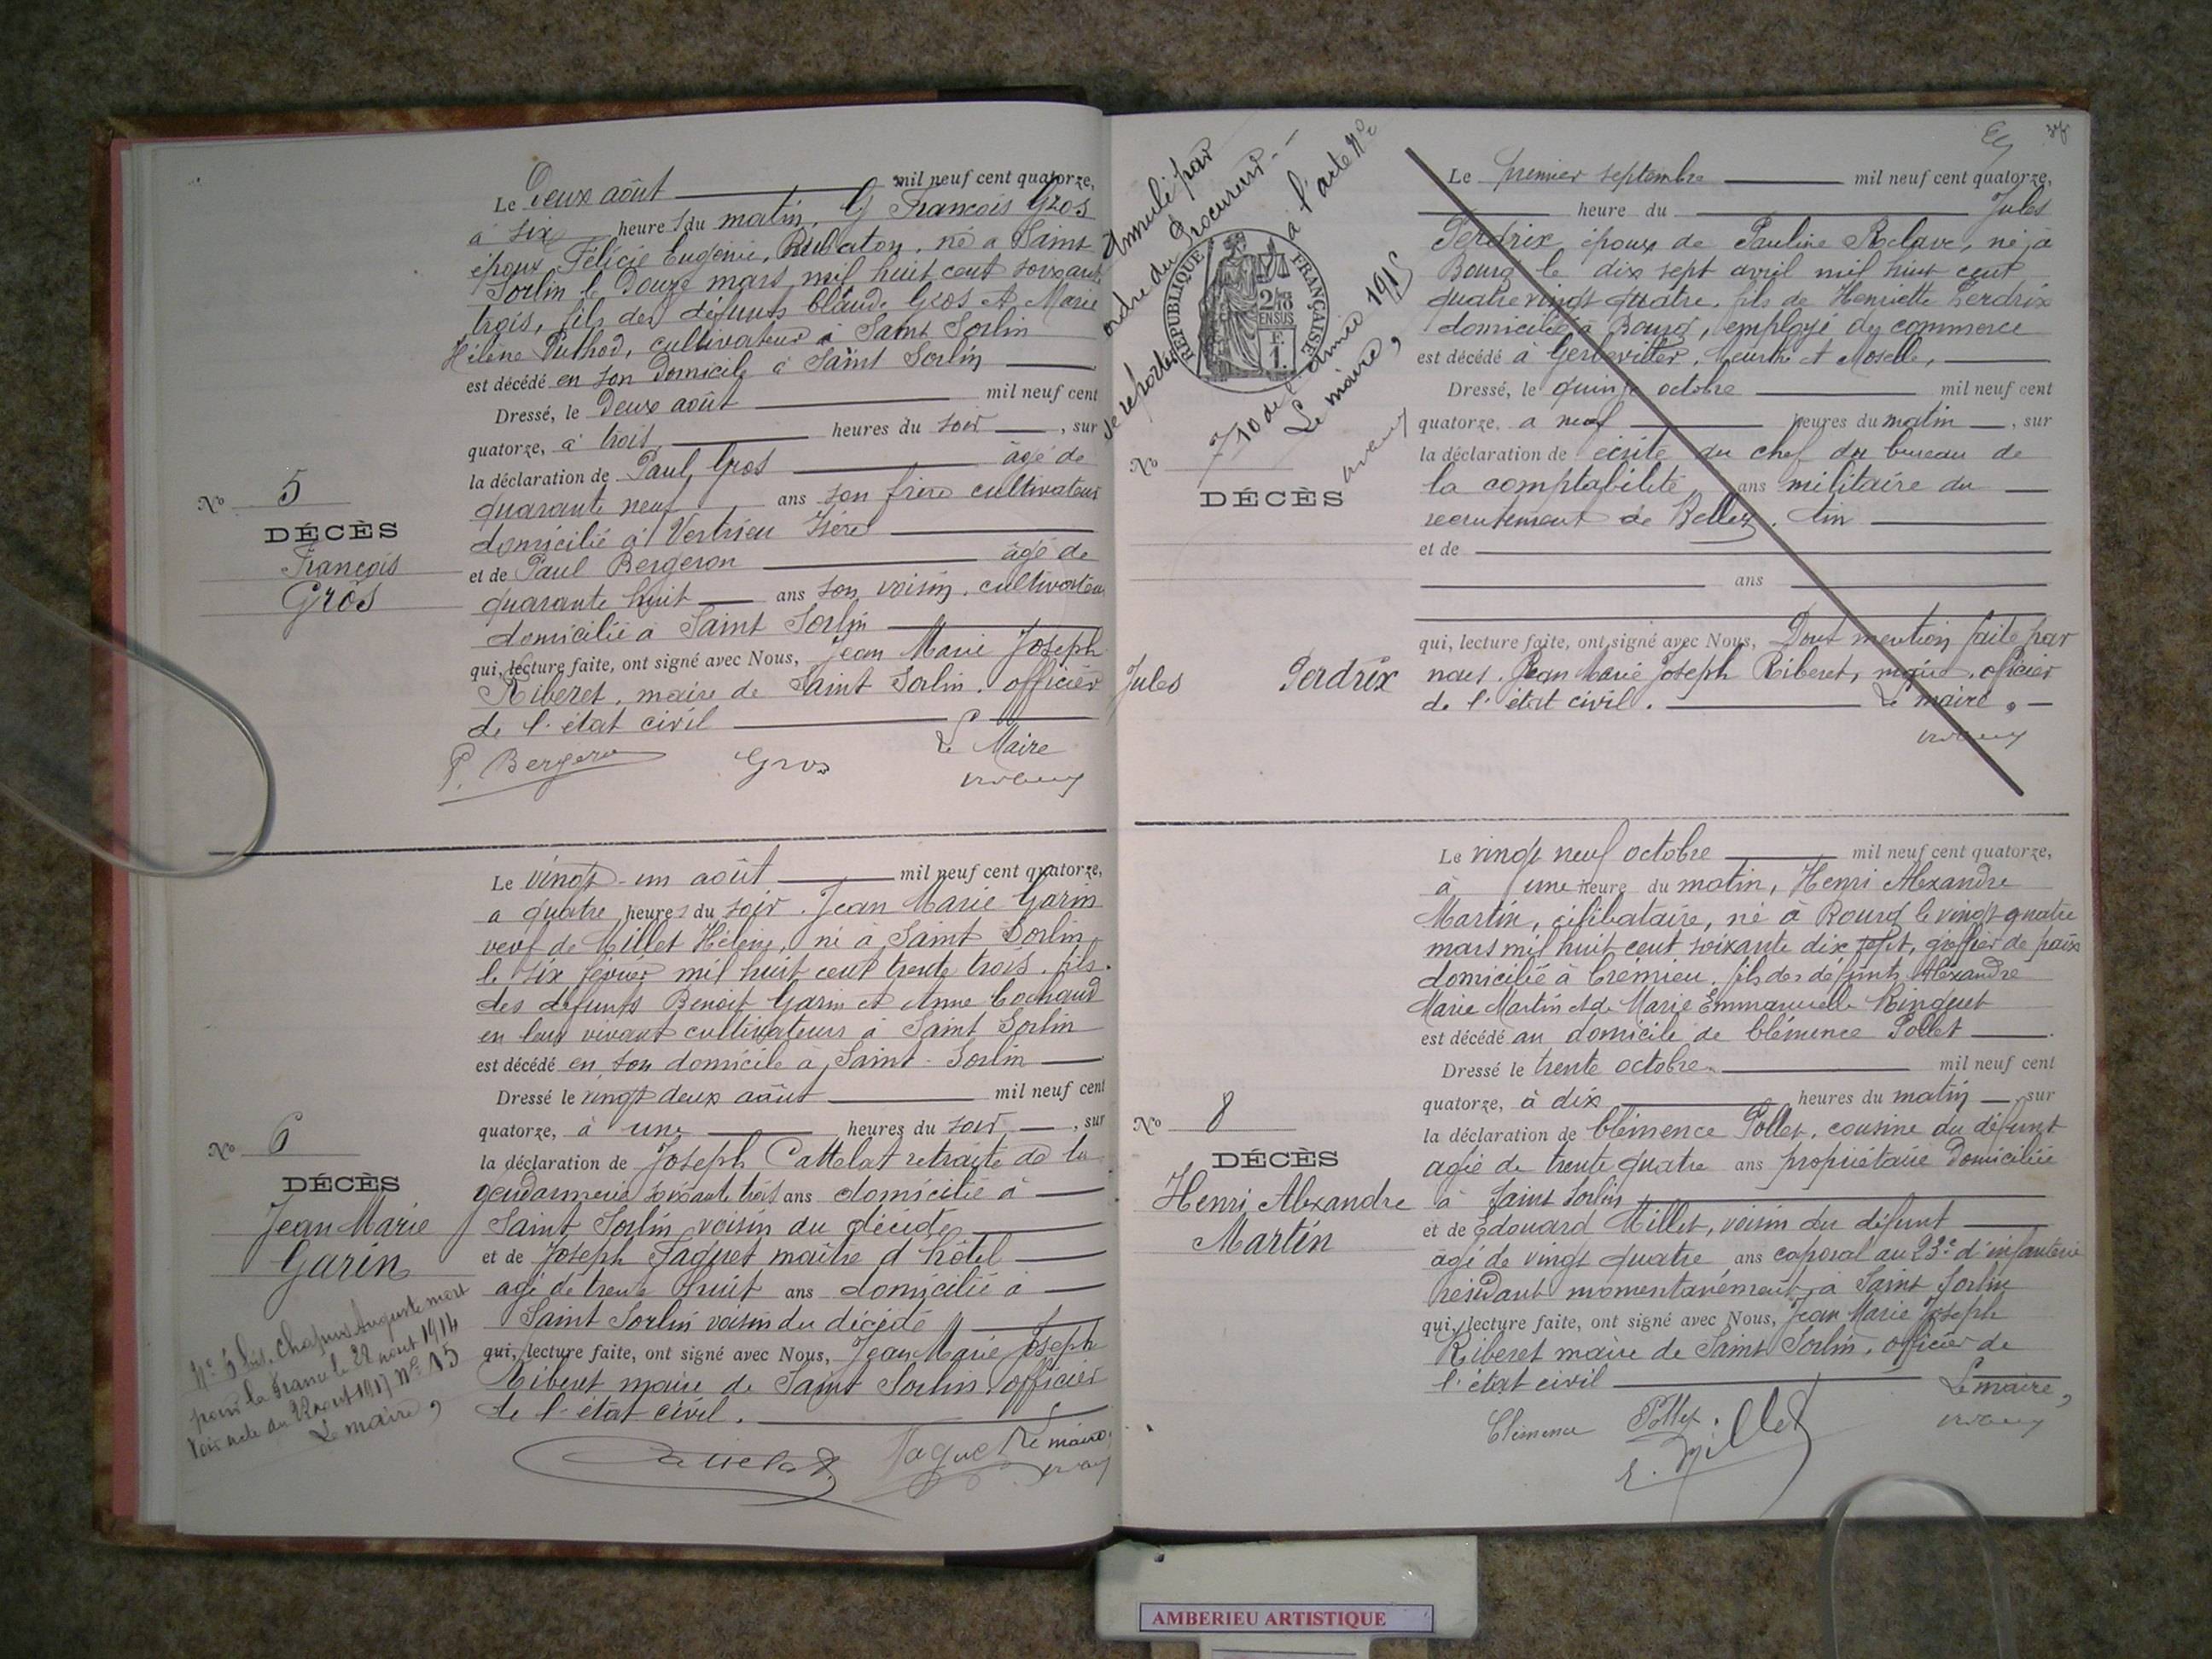 Le Deux août mil neuf cent quatorze,
à six heures du matin, François Gros
époux Félicie Eugénie, né à Saint
Sorlin le Douze mars mil huit cent soixante
trois, fils des défunts Claude Gros et Marie
Hélène Puthod, cultivateur à Saint Sorlin
est décédé en son domicile à Saint Sorlin
Dressé, le Deux août mil neuf cent
quatorze, à trois heures du soir, sur
la déclaration de Paul Gros âgé de
quarante neuf ans son frère cultivateur
domicilié à Vertrieu Isère
et de Paul Bergeron âgé de
quarante huit ans son voisin, cultivateur
domicilié à Saint Sorlin
qui, lecture faite, ont signé avec Nous, Jean Marie Joseph
Riberet, maire de Saint Sorlin, officier
de l'état civil
Le Maire
P. Bergeron Gros
No 5
DÉCÈS
François
Gros
Le vingt-un août mil neuf cent quatorze,
a quatre heures du soir. Jean Marie Garin
veuf de Millet Hélène, né à Saint Sorlin
le six février mil huit cent trente trois, fils
des défunts Benoit Garin et Anne Cochaud
en leur vivant cultivateurs à Saint Sorlin
est décédé en son domicile à Saint-Sorlin
Dressé le vingt deux août mil neuf cent
quatorze, à une heures du soir, sur
la déclaration de Joseph Cattelat retraité de la
gendarmerie soixante trois ans domicilié à
Saint Sorlin voisin du décédé
et de Joseph Taguet maître d'hôtel
agé de trente huit ans domicilié à
Saint Sorlin voisin du décédé
qui, lecture faite, ont signé avec Nous, Jean Marie Joseph
Riberet maire de Saint Sorlin officier
de l'état civil.
Cattelat Taguet Le maire,
No 6
DÉCÈS
Jean Marie
Garin
No 6 bis. Chapuis Auguste mort
pour la France le 22 aout 1914
Voir acte du 12 aout 1917 No 15
Le maire,
Annulé par
ordre du Procureur.-
Se reporter à l'acte No
10 de l'année 1915
Le maire,
RÉPUBLIQUE FRANÇAISE
EN SUS
Le Premier septembre mil neuf cent quatorze,
heure du Jules
Perdrix, époux de Pauline Relave, né à
Bourg le dix sept avril mil huit cent
quatre vingt quatre, fils de Henriette Perdrix
domicilié à Bourg, employé de commerce
est décédé à Gerbeviller, Meurthe et Moselle,
Dressé, le quinze octobre mil neuf cent
quatorze, a neuf heures du matin, sur
la déclaration de écrite du chef du bureau de
la comptabilité ans militaire du
recrutement de Belley. Ain
et de
ans
qui, lecture faite, ont signé avec Nous, Dont mention faite par
nous. Jean Marie Joseph Riberet, maire, officier
de l'état civil. Le maire,
No 7
DÉCÈS
Jules Perdrix
Le vingt neuf octobre mil neuf cent quatorze,
à une heure du matin, Henri Alexandre
Martin, célibataire, né à Bourg le vingt-quatre
mars mil huit cent soixante dix sept, greffier de paix
domicilié à Cremieu, fils des défunts Alexandre
Marie Martin et de Marie Emmanuelle Ringuet
est décédé au domicile de Clémence Pollet
Dressé le trente octobre mil neuf cent
quatorze, à dix heures du matin, sur
la déclaration de Clémence Pollet, cousine du défunt
agée de trente quatre ans propriétaire Domiciliée
à Saint Sorlin
et de Edouard Millet, voisin du défunt
âgé de vingt quatre ans caporal au 23e d'infanterie
résidant momentanément à Saint Sorlin
qui, lecture faite, ont signé avec Nous, Jean Marie Joseph
Riberet maire de Saint Sorlin, officier de
l'état civil Le maire,
Clémence Pollet.
E. Millet
No 8
DÉCÈS
Henri Alexandre
Martin
AMBERIEU ARTISTIQUE